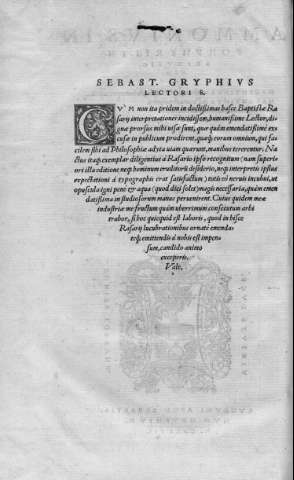 SEBAST. GRYPHIVS
LECTORI S.
CVM non ita pridem in doctissimas hasce Baptistæ Ra
sarij interpretationes incidissem, humanissime Lector, di
gnæ prorsus mihi uisæ sunt, quæ quàm emendatissimè ex
cusæ in publicum prodirent, quæq; coram omnium, qui fa
cilem sibi ad Philosophiæ adyta uiam quærunt, manibus tererentur. Na
ctus itaq; exemplar diligentius à Rasario ipso recognitum (nam superio
ori illa editione neq; hominum eruditorū desiderio, neq; interpretis ipsius
expectationi à typographis erat satisfactum) totis ei neruis incubui, ut
opuscula igni penè & aqua (quod dici solet) magis necessaria, quàm emen
datissima in studiosorum manus peruenirent. Cuius quidem meæ
industriæ me fructum quàm uberrimum consecutum arbi
trabor, si hoc quicquid est laboris, quod in hisce
Rasarij lucubrationibus ornatè emenda-
teq́; emittendis à nobis est impen-
sum, candido animo
exceperis.
Vale.